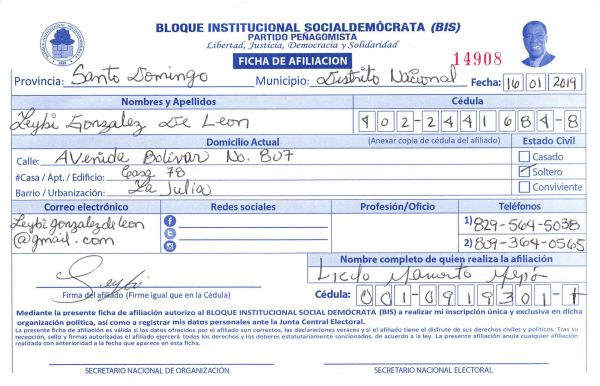 BLOQUE INSTITUCIONAL SOCIALDEMÓCRATA (BIS)
PARTIDO PEÑAGOMISTA
Libertad, Justicia, Democracia y Solidaridad
FICHA DE AFILIACION
14908
Provincia: Santo Domingo Municipio: Distrito Nacional Fecha: 16 01 2019
Nombres y Apellidos Cédula
Leybi Gonzalez De Leon 402-2441684-8
Domicilio Actual (Anexar copia de cédula del afiliado) Estado Civil
Calle: Avenida Bolivar No. 807 Casado
#Casa / Apt. / Edificio: Casa 78 Soltero
Barrio / Urbanización: La Julia Conviviente
Correo electrónico Redes sociales Profesión/Oficio Teléfonos
Leybigonzalezdeleon 1) 829-564-5038
@gmail.com 2) 809-364-0565
Nombre completo de quien realiza la afiliación
Leybi
Firma del afiliado (Firme igual que en la Cédula) Cédula: 001-0919301-1
Mediante la presente ficha de afiliación autorizo al BLOQUE INSTITUCIONAL SOCIAL DEMÓCRATA (BIS) a realizar mi inscripción única y exclusiva en dicha
organización política, así como a registrar mis datos personales ante la Junta Central Electoral.
La presente ficha de afiliación es válida si los datos ofrecidos por el afiliado son correctos, las declaraciones veraces y si el afiliado tiene el disfrute de sus derechos civiles y políticos. Tras su
recepción, sello y firmas autorizadas el afiliado ejercerá todos los derechos y los deberes estatutariamente sancionados, de acuerdo a la ley. La presente afiliación anula cualquier afiliación
realizada con anterioridad a la fecha que aparece en esta ficha.
SECRETARIO NACIONAL DE ORGANIZACIÓN SECRETARIO NACIONAL ELECTORAL